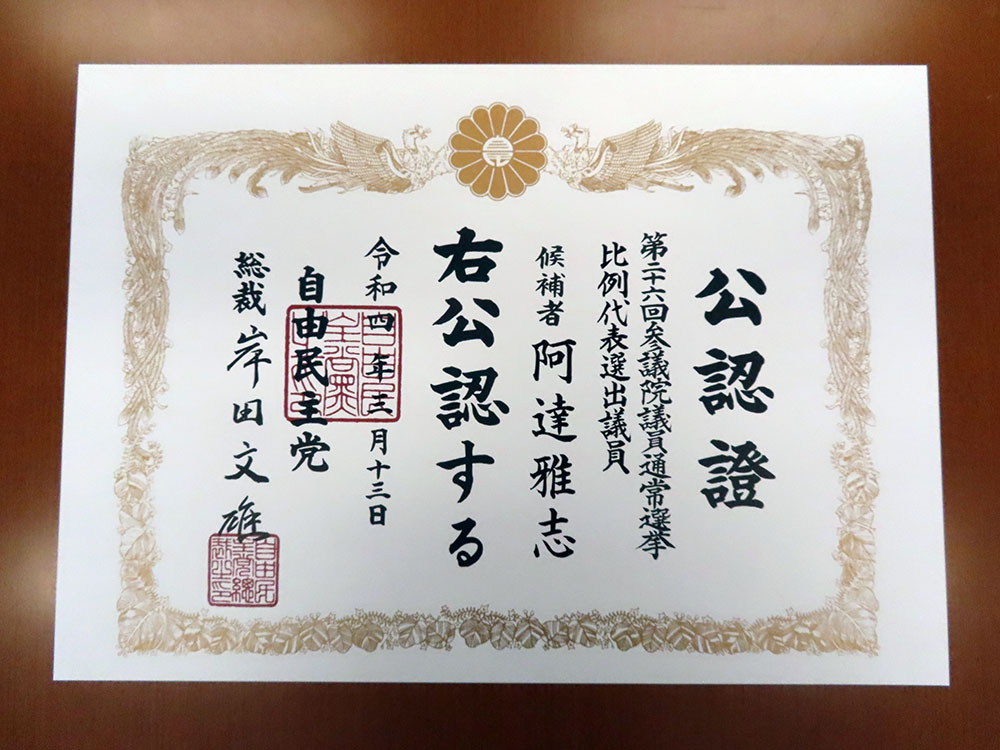 公認證
第二十六回参議院議員通常選挙
比例代表選出議員
候補者 阿達雅志
右公認する
令和四年三月十三日
自由民主党
総裁 岸田文雄